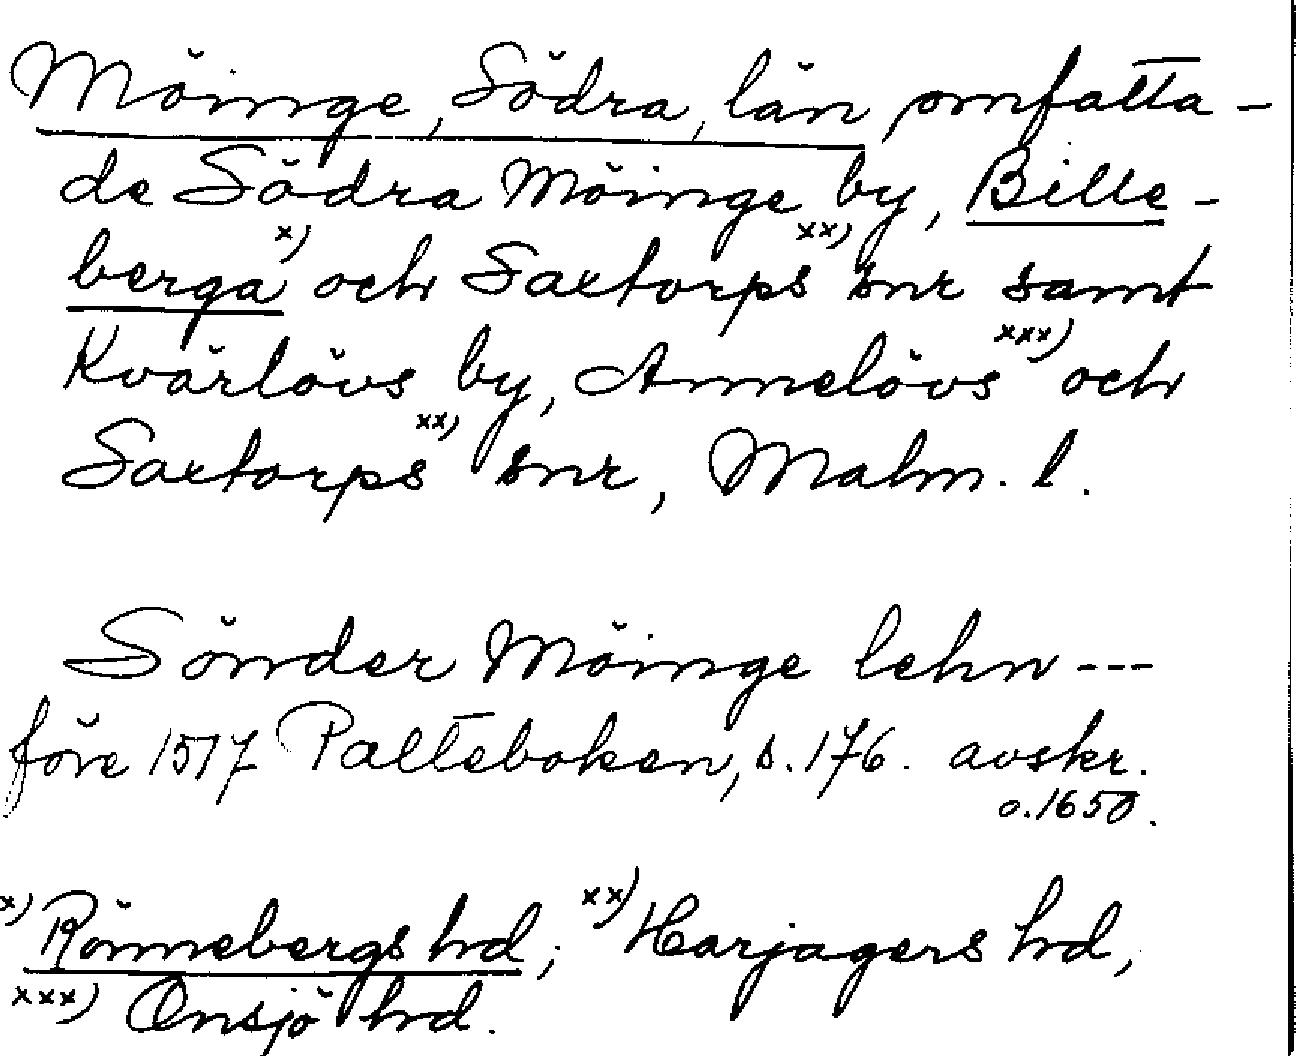 Möinge, Södra, län, omfatta-
de Södra Möinge by, Bille-
berga x) och Saxtorps xx) snr samt
Kvärlövs by, Annelövs xxx) och
Saxtorps xx) snr, Malm. l.
Sönder Möinge lehn ---
före 1517 Palteboken, s. 176. avskr.
o. 1650.
x) Rönnebergs hd; xx) Harjagers hd,
xxx) Onsjö hd.